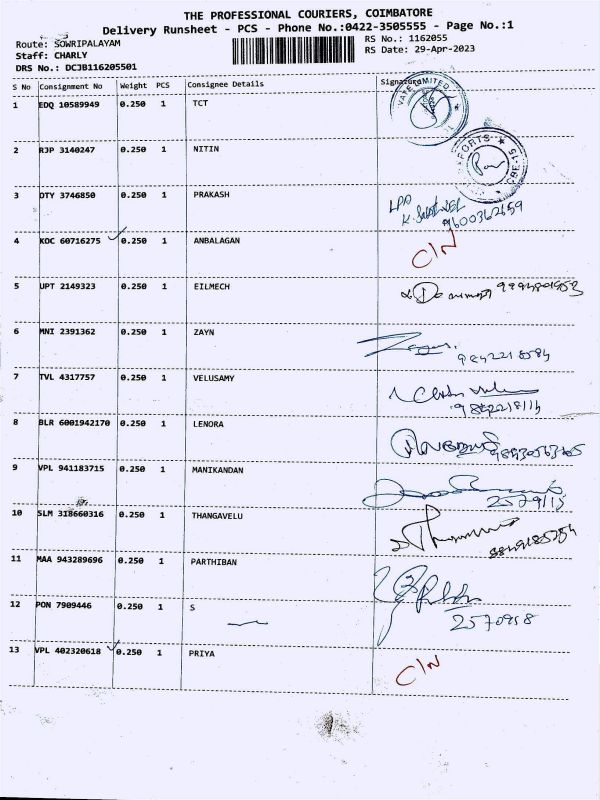 THE PROFESSIONAL COURIERS, COIMBATORE
Delivery Runsheet - PCS - Phone No.:0422-3505555 - Page No.:1
Route: SOWRIPALAYAM
RS No.: 1162055
Staff: CHARLY
RS Date: 29-Apr-2023
DRS No.: DCJB116205501
S No Consignment No Weight PCS Consignee Details Signature
1 EDQ 10589949 0.250 1 TCT
2 RJP 3140247 0.250 1 NITIN
3 DTY 3746850 0.250 1 PRAKASH
9600362659
4 KOC 60716275 0.250 1 ANBALAGAN C/N
5 UPT 2149323 0.250 1 EILMECH
6 MNI 2391362 0.250 1 ZAYN
9842218584
7 TVL 4317757 0.250 1 VELUSAMY
8 BLR 6001942170 0.250 1 LENORA
9 VPL 941183715 0.250 1 MANIKANDAN
10 SLM 318660316 0.250 1 THANGAVELU
11 MAA 943289696 0.250 1 PARTHIBAN
12 PON 7909446 0.250 1 S
2570958
13 VPL 402320618 0.250 1 PRIYA C/N